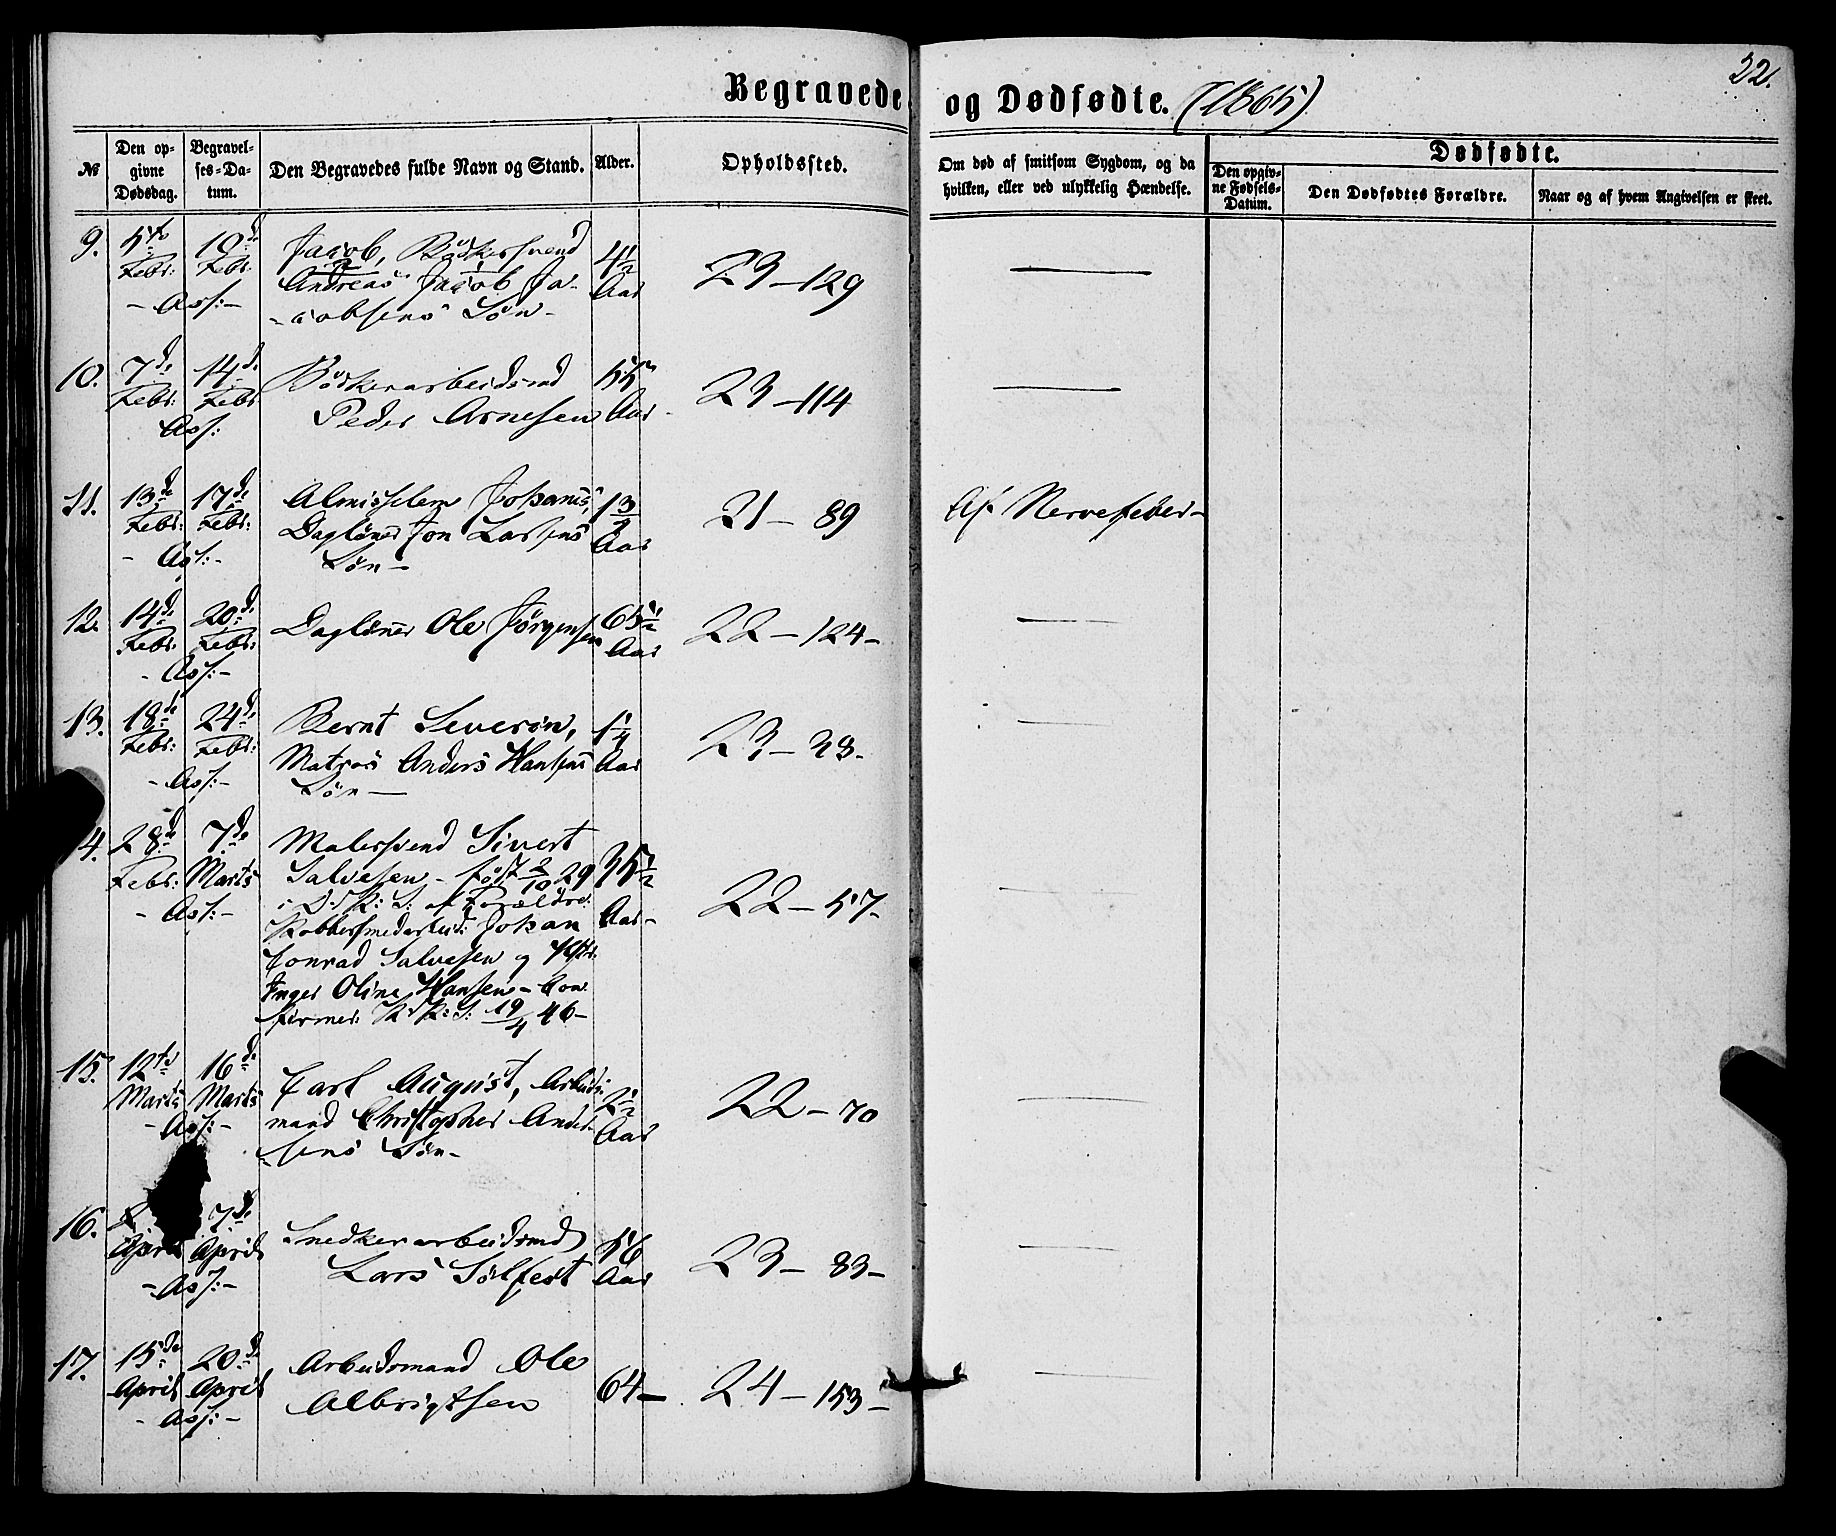 32.
Begravede og Dødfødte. (1865)
№
Den opgivne Dødsdag.
Begravelses-Datum.
Den Begravedes fulde Navn og Stand.
Alder.
Opholdssted.
Om død af smitsom Sygdom, og da hvilken, eller ved ulykkelig Hændelse.
Dødfødte.
Den opgivne Fødsels-Datum.
Den Dødfødtes Forældre.
Naar og af hvem Angivelsen er skeet.
9. 5te Febr: 10de Febr: Jacob, Bødkersvend 4½ Aar 23-129
Andreas Jacob Ja-
-cobsens Søn-
-Ass:-
10. 7de Febr: 14de Febr Bødkerarbeidsmd 55 Aar 23-114
Peder Arnesen
Ass:
11. 13de Febr: 17de Febr: Johans, 1¾ Aar 21- 89 Af Nervefeber-
Dagløner Jon Larsens
Søn-
- Ass:-
12. 14de Febr: 20de Febr: Dagløner Ole Jörgensen 65½ Aar 22-124-
- Ass:-
13. 18de Febr: 24de Febr: Bernt Severin, 1¼ Aar 23-38-
Matros Anders Hansens
Søn-
-Ass:-
14. 28de Febr: 7de Marts Malersvend Sivert 35½ Aar- 22-57-
Salvesen- født 2/10 29
i D: K: S: af Forældre:
Kobbersmedarbeid: Johan
Conrad Salvesen og Hstr.
Inger Oline Hansen- Con-
firmer: K: S: 19/4 46-
- Ass:-
15. 12te Marts 16de Marts Carl August, Arbeids- 2½ Aar 22-70
mand Christopher Ander-
-sens Søn-
-Ass:-
16. April 7de April Snedkerarbeidsmd 56 Aar 23- 83-
Lars Sölfest
-Ass:-
17. 15de April 20de April Arbeidsmand Ole 64- 24-153-
Albrigtsen
- Ass:-